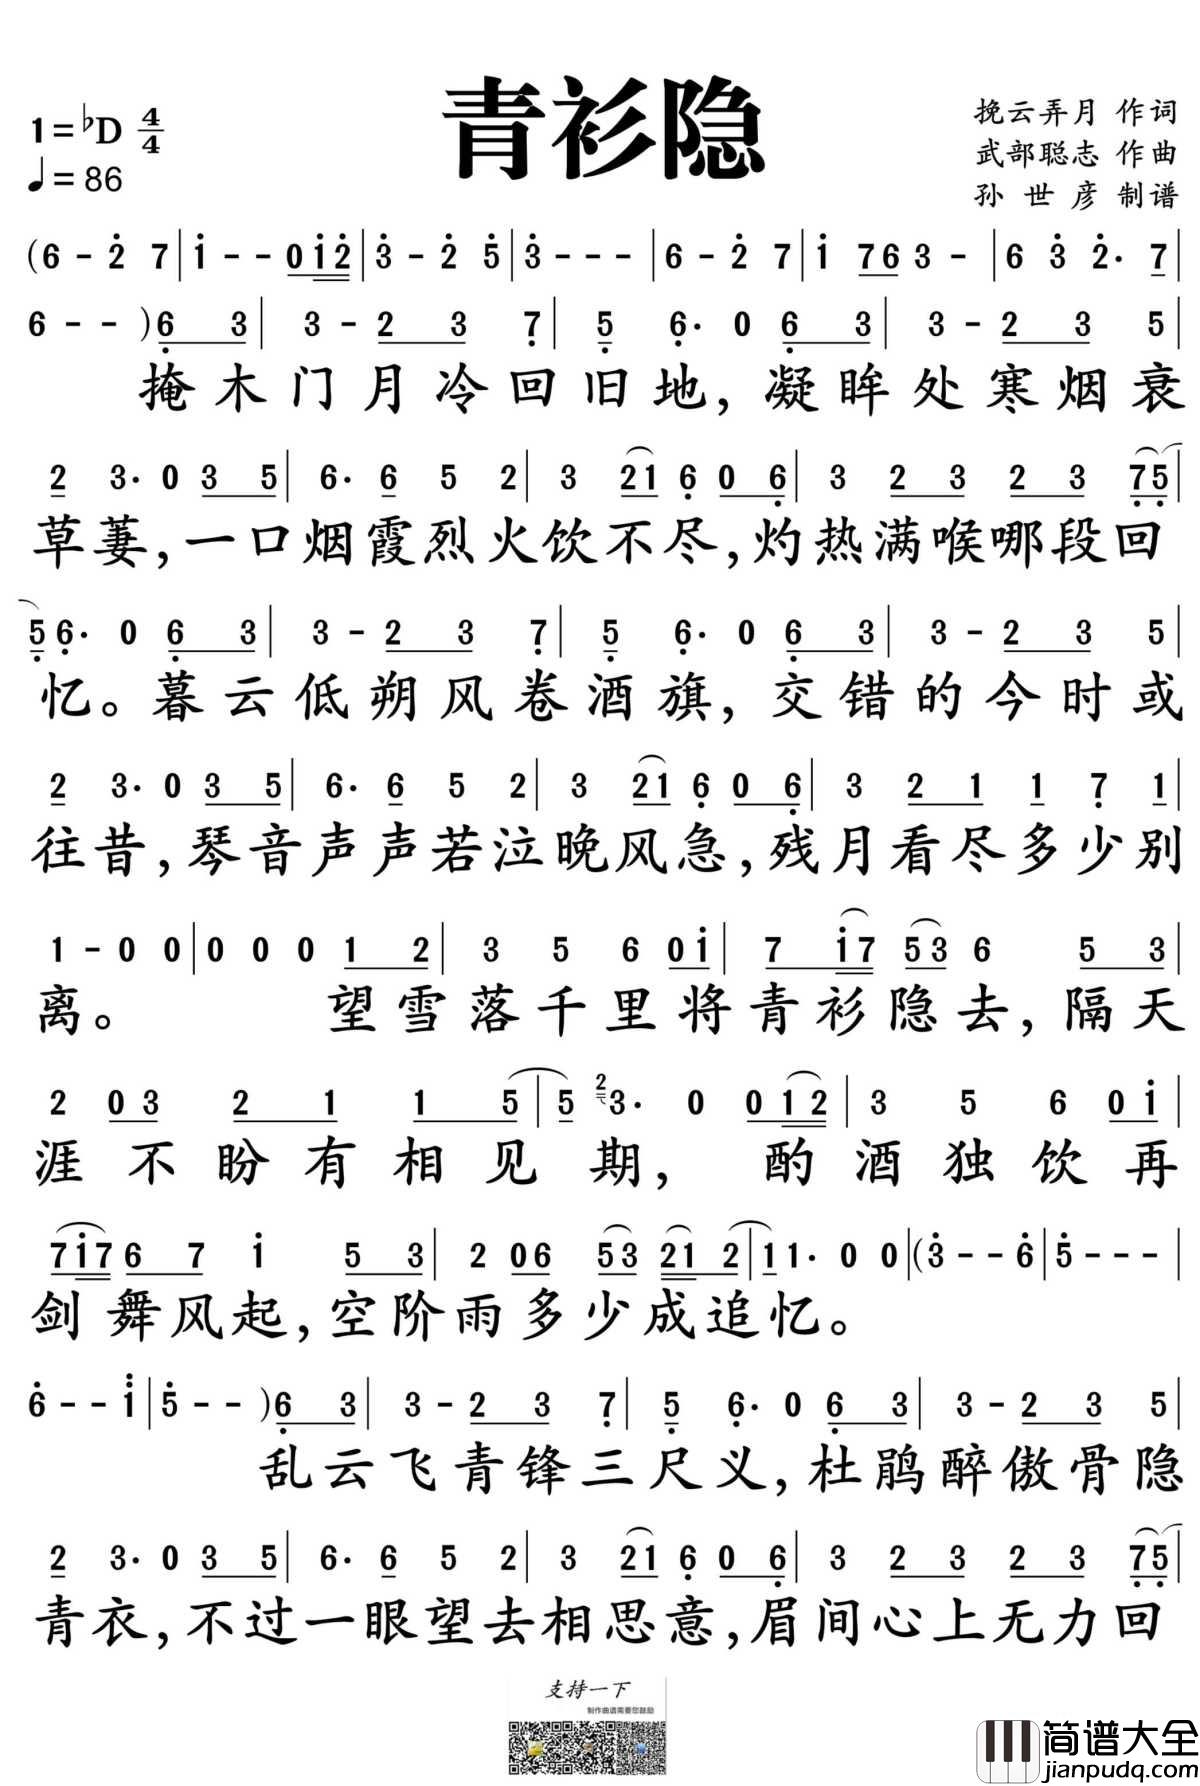 青衫隐
1=♭D 4/4
♩=86
挽云弄月 作词
武部聪志 作曲
孙世彦 制谱
(6 - 2̇ 7 | 1̇ - - 0 1̇ 2̇ | 3̇ - 2̇ 5̇ | 3̇ - - - | 6 - 2̇ 7 | 1̇ 7 6 3 - | 6 3̇ 2̇· 7 |
6 - - ) 6̣ 3 | 3 - 2 3 7̣ | 5̣ 6̣· 0 6̣ 3 | 3 - 2 3 5 |
掩木门月冷回旧地，凝眸处寒烟衰
2 3· 0 3 5 | 6· 6 5 2 | 3 2 1 6̣ 0 6̣ | 3 2 3 2 3 7̣ 5̣ |
草萋，一口烟霞烈火饮不尽，灼热满喉哪段回
5̣ 6̣· 0 6̣ 3 | 3 - 2 3 7̣ | 5̣ 6̣· 0 6̣ 3 | 3 - 2 3 5 |
忆。暮云低朔风卷酒旗，交错的今时或
2 3· 0 3 5 | 6· 6 5 2 | 3 2 1 6̣ 0 6̣ | 3 2 1 1 7̣ 1 |
往昔，琴音声声若泣晚风急，残月看尽多少别
1 - 0 0 | 0 0 0 1 2 | 3 5 6 0 1̇ | 7 1̇ 7 5 3 6 5 3 |
离。望雪落千里将青衫隐去，隔天
2 0 3 2 1 1 5 | 5 2 3· 0 0 1 2 | 3 5 6 0 1̇ |
涯不盼有相见期，酌酒独饮再
7 1̇ 7 6 7 1̇ 5 3 | 2 0 6 5 3 2 1 2 | 1 1· 0 0 | (3̇ - - 6̇ | 5̇ - - - |
剑舞风起，空阶雨多少成追忆。
6̇ - - 1̈ | 5̇ - - ) 6̣ 3 | 3 - 2 3 7̣ | 5̣ 6̣· 0 6̣ 3 | 3 - 2 3 5 |
乱云飞青锋三尺义，杜鹃醉傲骨隐
2 3· 0 3 5 | 6· 6 5 2 | 3 2 1 6̣ 0 6̣ | 3 2 3 2 3 7̣ 5̣ |
青衣，不过一眼望去相思意，眉间心上无力回
支持一下
制作曲谱需要您鼓励
简谱大全
jianpudq.com